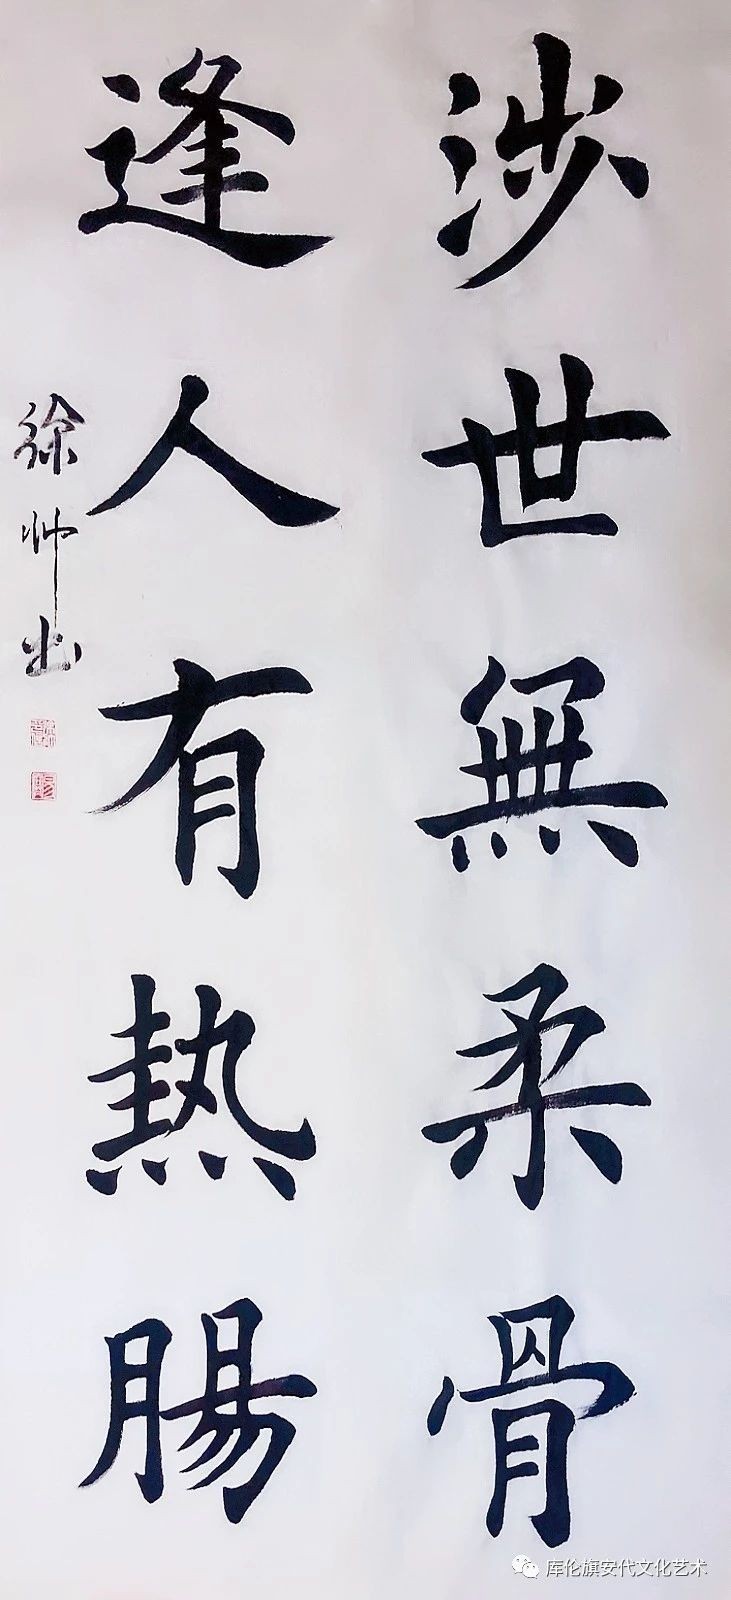 涉世無柔骨
逢人有热腸
徐帅书
库伦旗安代文化艺术